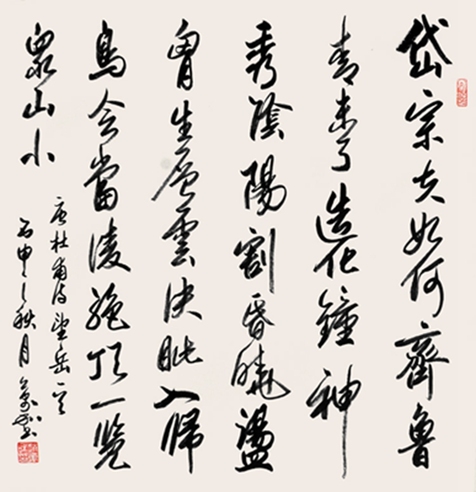 岱宗夫如何齊魯
青未了造化鐘神
秀陰陽割昏曉盪
胷生層雲決眦入歸
鳥會當凌絕頂一覽
眾山小
唐杜甫詩望岳一首
丙申之秋月